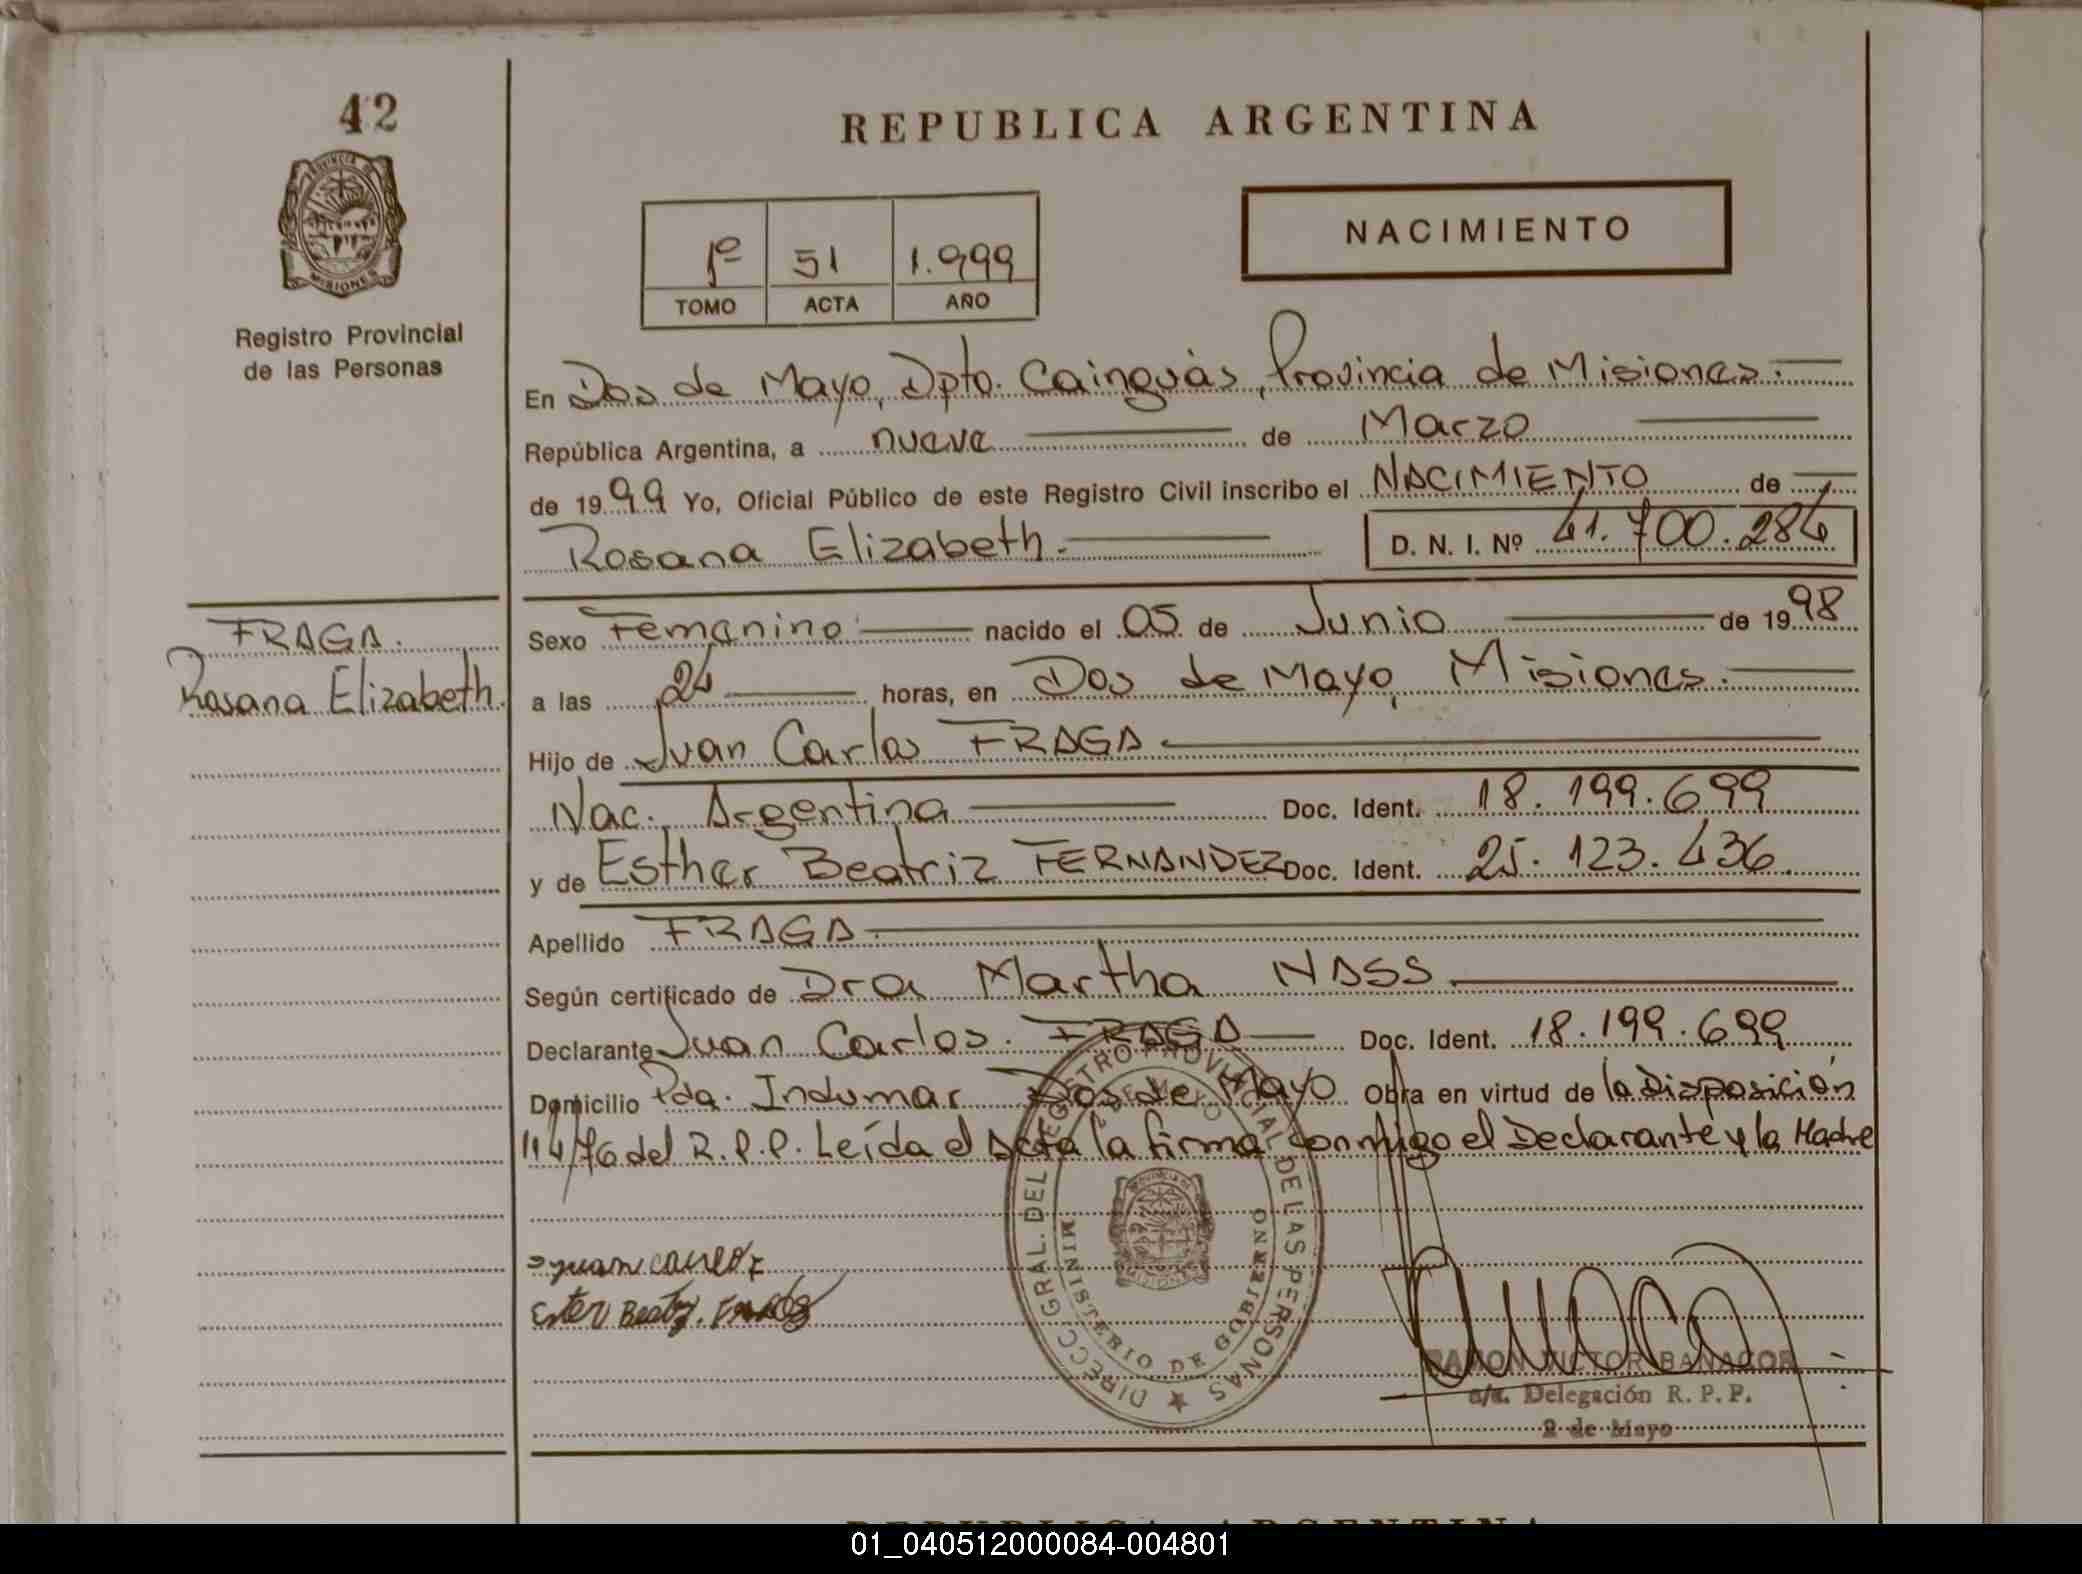 42
REPUBLICA ARGENTINA
NACIMIENTO
1º 51 1.999
TOMO ACTA AÑO
PROVINCIA DE
MISIONES
Registro Provincial
de las Personas
En Dos de Mayo, Dpto. Cainguás, Provincia de Misiones.
República Argentina, a nueve de Marzo
de 1999 Yo, Oficial Público de este Registro Civil inscribo el NACIMIENTO de
Rosana Elizabeth. D. N. I. Nº 41.700.284
FRAGA.
Rosana Elizabeth.
Sexo Femenino nacido el 05 de Junio de 1998
a las 24 horas, en Dos de Mayo, Misiones.
Hijo de Juan Carlos FRAGA
Nac. Argentina Doc. Ident. 18.199.699
y de Esther Beatriz FERNANDEZ Doc. Ident. 25.123.436.
Apellido FRAGA
Según certificado de Dra Martha NASS
Declarante Juan Carlos. FRAGA Doc. Ident. 18.199.699
Domicilio Pda. Indumar Dos de Mayo Obra en virtud de la Disposición
114/76 del R.P.P. Leída el Acta la firma conmigo el Declarante y la Madre
DIRECC GRAL. DEL REGISTRO PROVINCIAL DE LAS PERSONAS
MINISTERIO DE GOBIERNO
2 DE MAYO
PROVINCIA DE
MISIONES
Juan Carlos F
Ester Beatriz
RAMON VICTOR BANACOR
a/c. Delegación R. P. P.
2 de Mayo
REPUBLICA ARGENTINA
01_040512000084-004801